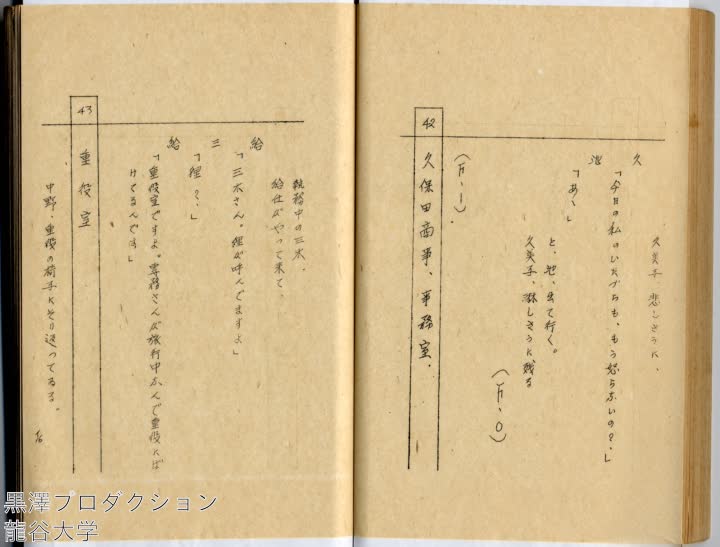 久美子、悲しさうに、
久「今日の私のいたづらも、もう怒らないの?」
池「あゝ」
と、池、出て行く。
久美子、淋しさうに残る
(F・O)
42 久保田商事、事務室、
(F・I)、
執務中の三木、
給仕がやつて来て、
給「三木さん。狸が呼んでますよ」
三「狸?」
給「重役室ですよ。専務さんが旅行中なんで重役にば
けてるんです」
43 重役室
中野、重役の椅子にそり返つてゐる。
黒澤プロダクション
龍谷大学